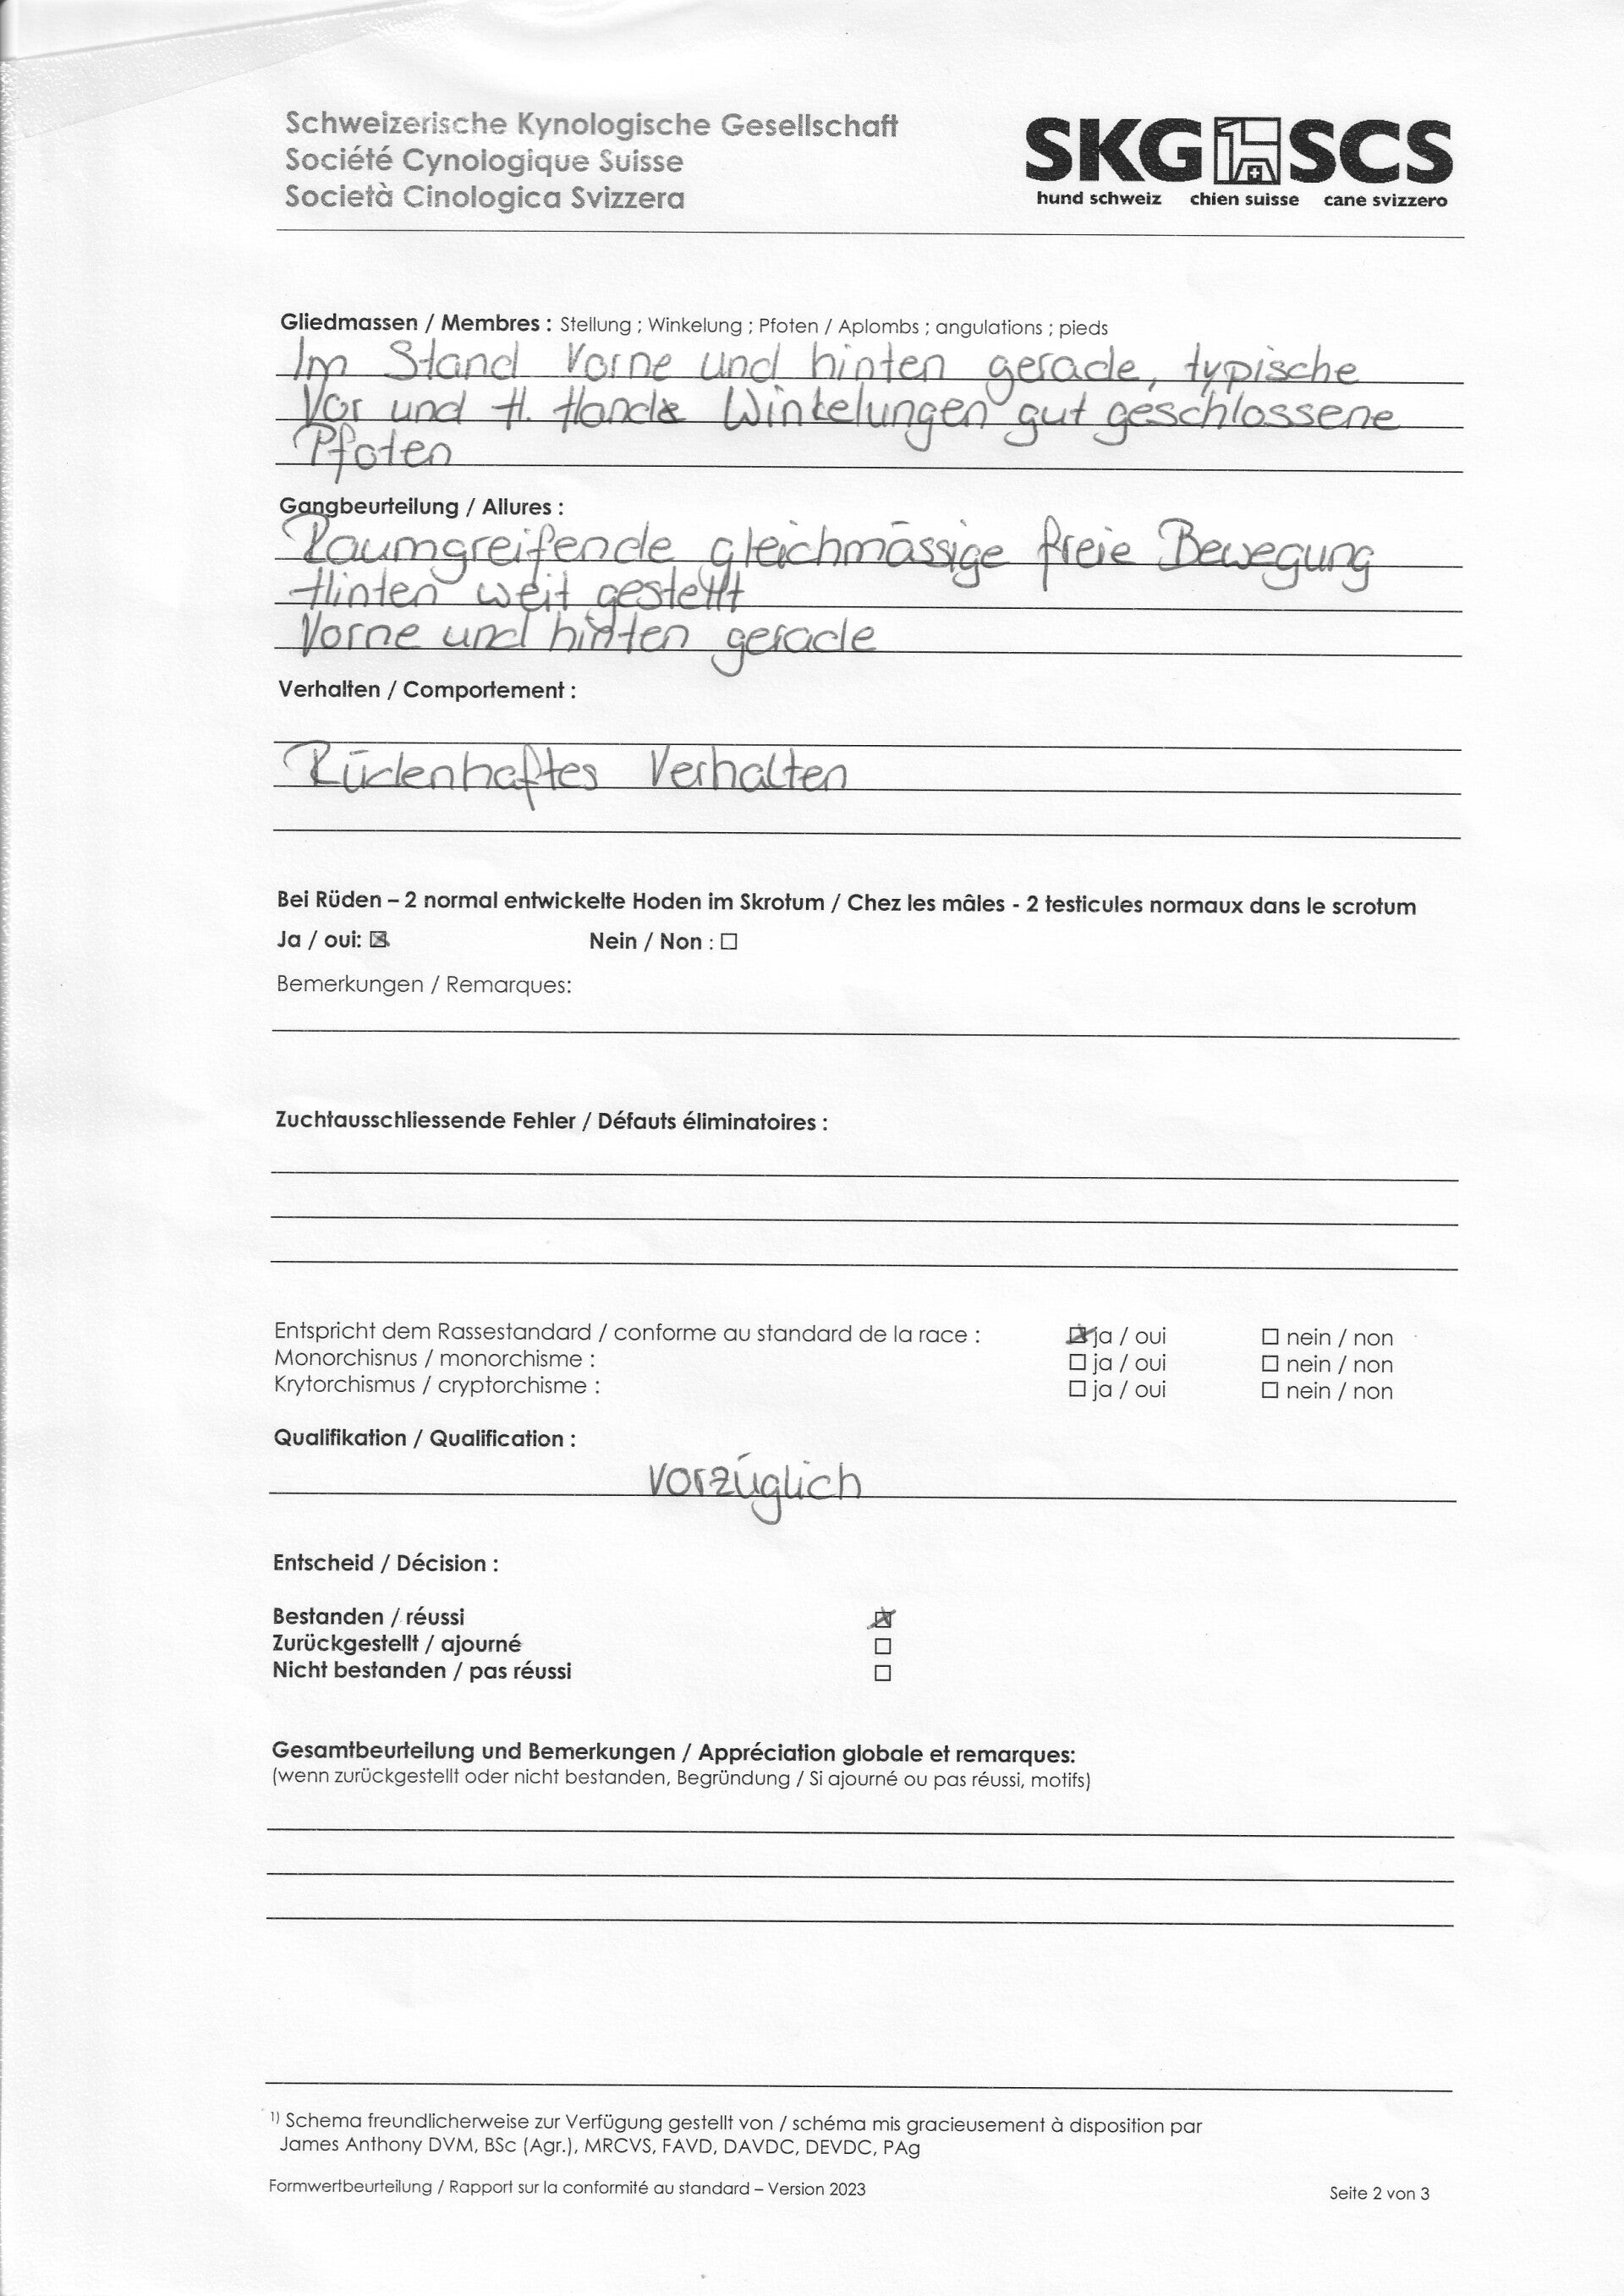 Schweizerische Kynologische Gesellschaft
Société Cynologique Suisse
Società Cinologica Svizzera
SKG SCS
hund schweiz chien suisse cane svizzero
Gliedmassen / Membres : Stellung ; Winkelung ; Pfoten / Aplombs ; angulations ; pieds
Im Stand Vorne und hinten gerade, typische
Vor und H. Hand Winkelungen gut geschlossene
Pfoten
Gangbeurteilung / Allures :
Raumgreifende gleichmässige freie Bewegung
Hinten weit gestellt
Vorne und hinten gerade
Verhalten / Comportement :
Rüdenhaftes Verhalten
Bei Rüden – 2 normal entwickelte Hoden im Skrotum / Chez les mâles - 2 testicules normaux dans le scrotum
Ja / oui: ☒ Nein / Non : ☐
Bemerkungen / Remarques:
Zuchtausschliessende Fehler / Défauts éliminatoires :
Entspricht dem Rassestandard / conforme au standard de la race : ☒ ja / oui ☐ nein / non
Monorchisnus / monorchisme : ☐ ja / oui ☐ nein / non
Krytorchismus / cryptorchisme : ☐ ja / oui ☐ nein / non
Qualifikation / Qualification :
vorzüglich
Entscheid / Décision :
Bestanden / réussi ☒
Zurückgestellt / ajourné ☐
Nicht bestanden / pas réussi ☐
Gesamtbeurteilung und Bemerkungen / Appréciation globale et remarques:
(wenn zurückgestellt oder nicht bestanden, Begründung / Si ajourné ou pas réussi, motifs)
1) Schema freundlicherweise zur Verfügung gestellt von / schéma mis gracieusement à disposition par
James Anthony DVM, BSc (Agr.), MRCVS, FAVD, DAVDC, DEVDC, PAg
Formwertbeurteilung / Rapport sur la conformité au standard – Version 2023
Seite 2 von 3